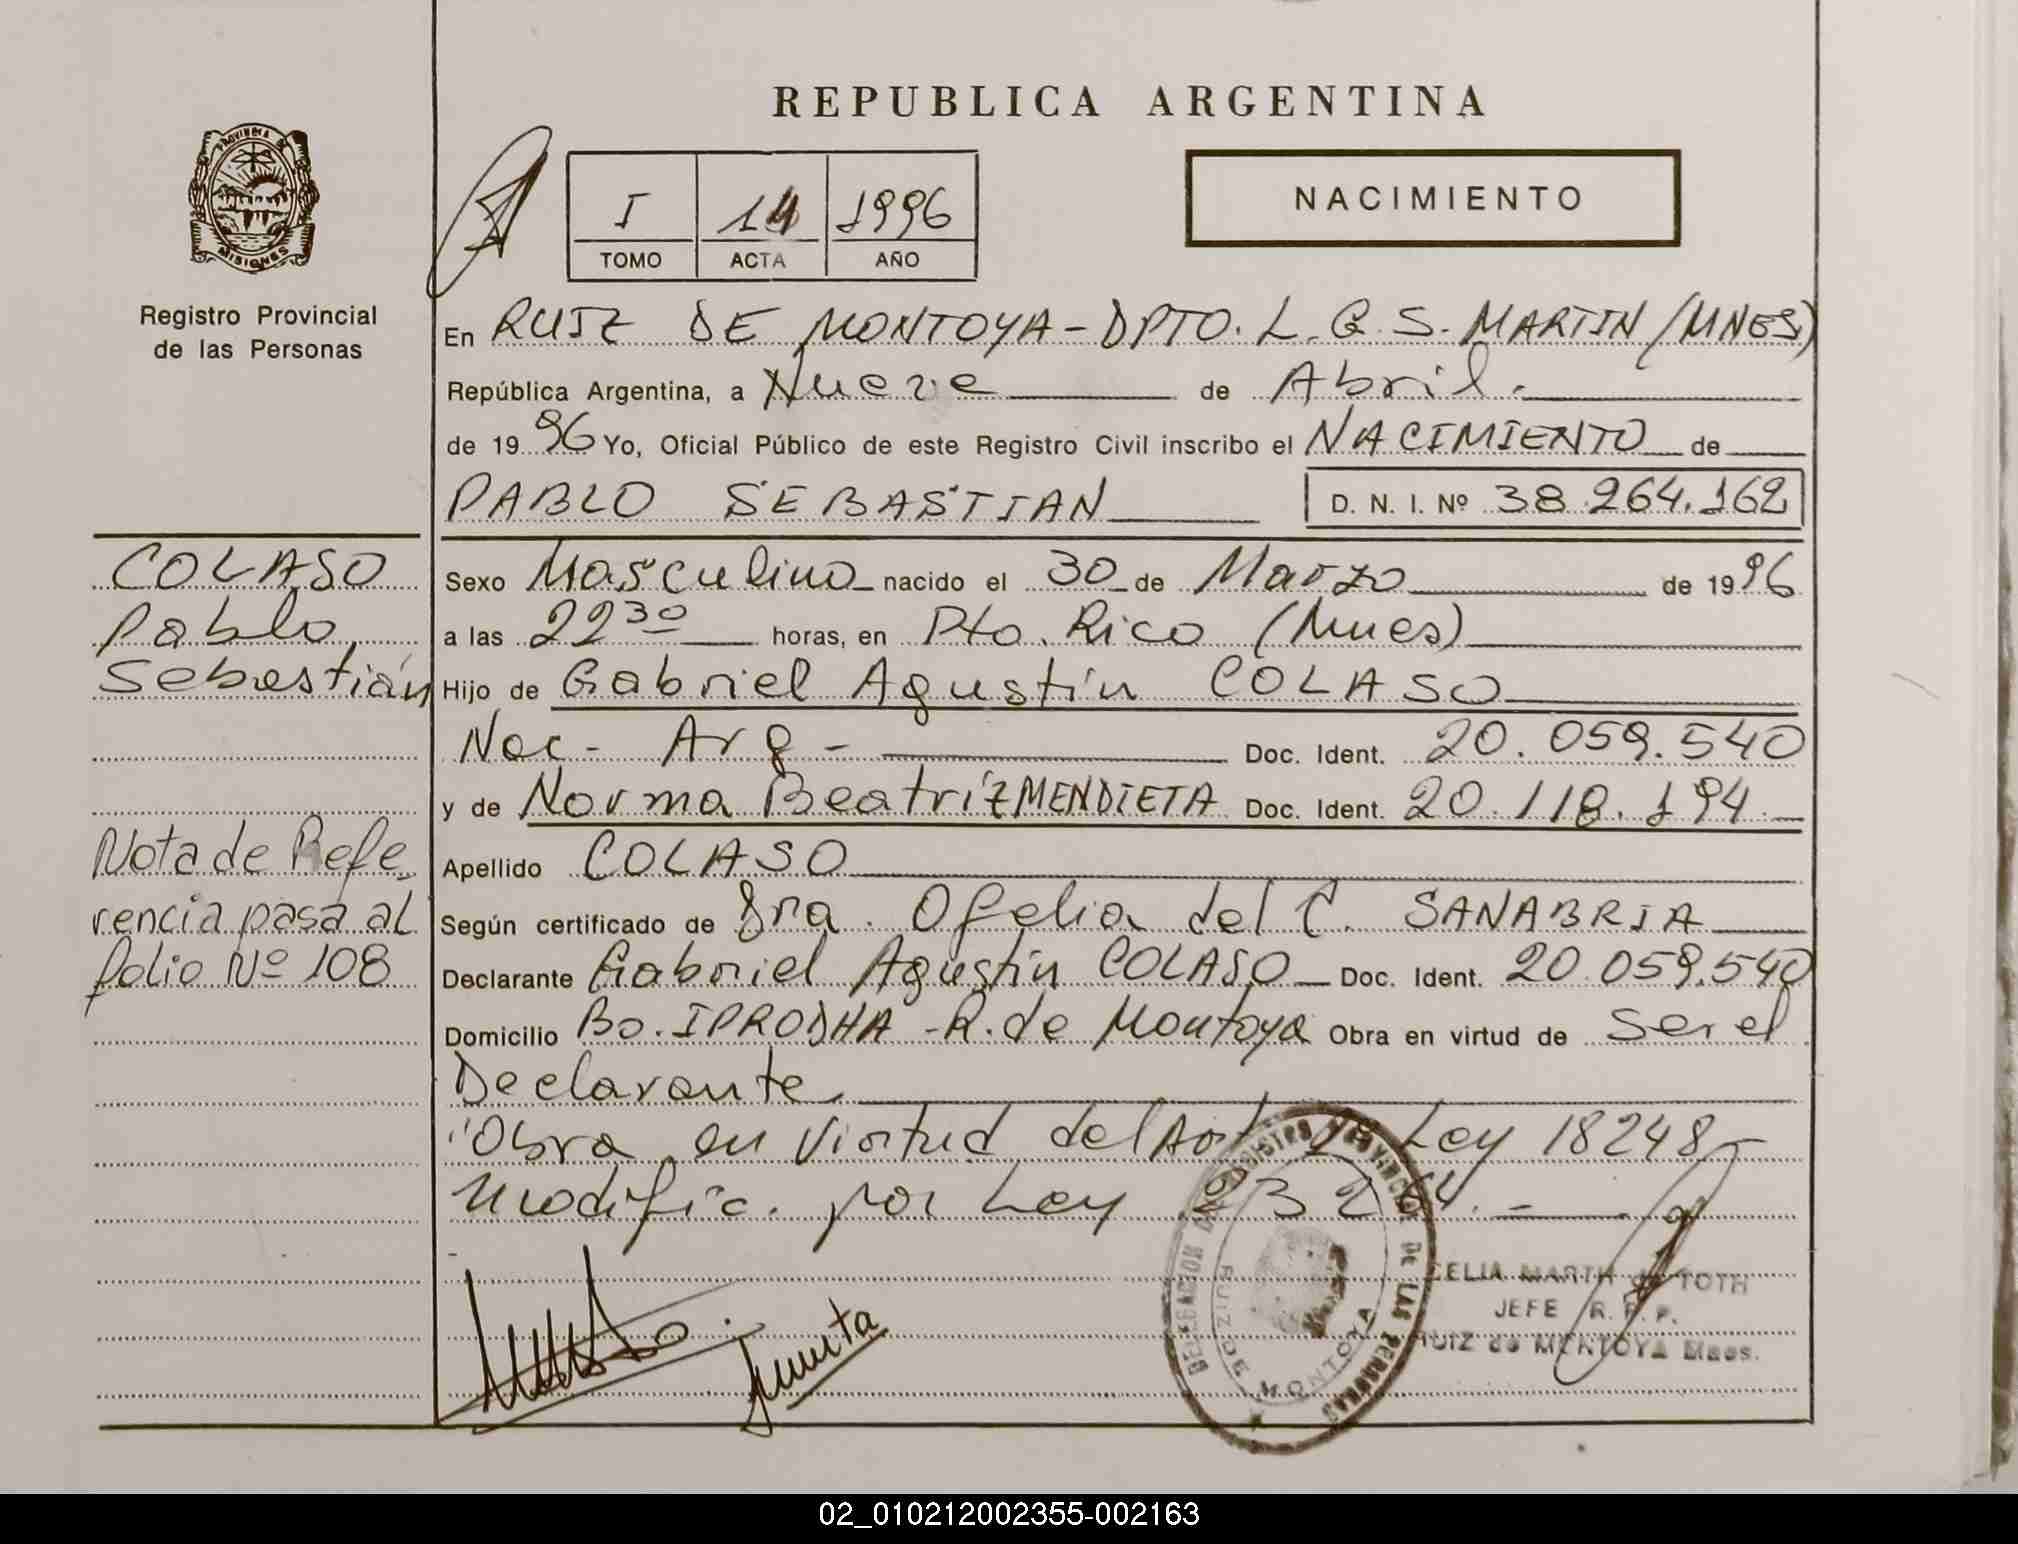 REPUBLICA ARGENTINA
PROVINCIA DE
MISIONES
Registro Provincial
de las Personas
NACIMIENTO
I 14 1996
TOMO ACTA AÑO
En RUIZ DE MONTOYA - DPTO. L. G. S. MARTIN (MNES)
República Argentina, a Nueve de Abril.
de 1996 Yo, Oficial Público de este Registro Civil inscribo el NACIMIENTO de
PABLO SEBASTIAN D. N. I. Nº 38.264.162
COLASO
Pablo
Sebastián
Sexo Masculino nacido el 30 de Marzo de 1996
a las 22 30 horas, en Pto. Rico (Mnes)
Hijo de Gabriel Agustín COLASO
Nac- Arg - Doc. Ident. 20.059.540
y de Norma Beatríz MENDIETA Doc. Ident. 20.118.194.
Nota de Refe
rencia pasa al
folio Nº 108
Apellido COLASO
Según certificado de Dra. Ofelia del C. SANABRIA
Declarante Gabriel Agustín COLASO Doc. Ident. 20.059.540
Domicilio Bo. IPRODHA - R. de Montoya Obra en virtud de ser el
Declarante.
Obra en virtud del Art. 2º Ley 18248
modific. por Ley 23264.
DELEGACION DEL REGISTRO PROVINCIAL DE LAS PERSONAS
RUIZ DE MONTOYA
CELIA MARTH de TOTH
JEFE R. P. P.
RUIZ de MONTOYA Mnes.
02_010212002355-002163